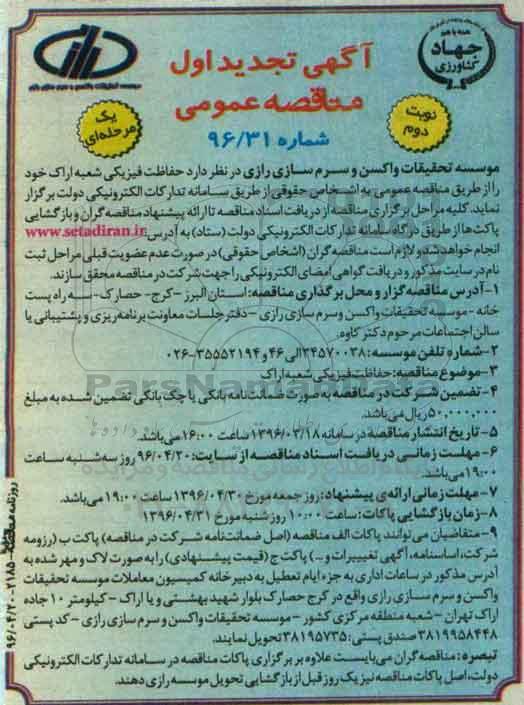 همه با هم
جهاد
کشاورزی
آگهی تجدید اول
مناقصه عمومی
شماره ۹۶/۳۱
نوبت
دوم
یک
مرحله‌ای
موسسه تحقیقات واکسن و سرم سازی رازی در نظر دارد حفاظت فیزیکی شعبه اراک خود
را از طریق مناقصه عمومی به اشخاص حقوقی از طریق سامانه تدارکات الکترونیکی دولت برگزار
نماید. کلیه مراحل برگزاری مناقصه از دریافت اسناد مناقصه تا ارائه پیشنهاد مناقصه گران و بازگشایی
پاکت‌ها از طریق درگاه سامانه تدارکات الکترونیکی دولت (ستاد) به آدرس: www.setadiran.ir
انجام خواهد شد و لازم است مناقصه گران (اشخاص حقوقی) در صورت عدم عضویت قبلی مراحل ثبت
نام در سایت مذکور و دریافت گواهی امضای الکترونیکی را جهت شرکت در مناقصه محقق سازند.
۱- آدرس مناقصه گزار و محل برگذاری مناقصه: استان البرز - کرج- حصارک- سه راه پست
خانه - موسسه تحقیقات واکسن و سرم سازی رازی - دفتر جلسات معاونت برنامه ریزی و پشتیبانی یا
سالن اجتماعات مرحوم دکتر کاوه.
۲- شماره تلفن موسسه: ۳۴۵۷۰۰۳۸ الی ۴۶ و ۳۵۵۵۲۱۹۴-۰۲۶
۳- موضوع مناقصه: حفاظت فیزیکی شعبه اراک
۴- تضمین شرکت در مناقصه به صورت ضمانت نامه بانکی یا چک بانکی تضمین شده به مبلغ
۵۰,۰۰۰,۰۰۰ ریال می باشد.
۵- تاریخ انتشار مناقصه در سامانه ۱۳۹۶/۰۳/۱۸ ساعت ۱۶:۰۰ می باشد.
۶- مهلت زمانی دریافت اسناد مناقصه از سایت: ۹۶/۰۴/۲۰ روز سه شنبه ساعت
۱۹:۰۰ می باشد.
۷- مهلت زمانی ارائه‌ی پیشنهاد: روز جمعه مورخ ۱۳۹۶/۰۴/۳۰ ساعت ۱۹:۰۰ می باشد.
۸- زمان بازگشایی پاکات: ساعت ۱۰:۰۰ روز شنبه مورخ ۱۳۹۶/۰۴/۳۱
۹- متقاضیان می توانند پاکات الف مناقصه (اصل ضمانت نامه شرکت در مناقصه) پاکت ب (رزومه
شرکت، اساسنامه، آگهی تغییرات و ..) پاکت ج (قیمت پیشنهادی) را به صورت لاک و مهر شده به
آدرس مذکور در ساعات اداری به جزء ایام تعطیل به دبیرخانه کمیسیون معاملات موسسه تحقیقات
واکسن و سرم سازی رازی واقع در کرج حصارک بلوار شهید بهشتی و یا اراک - کیلومتر ۱۰ جاده
اراک تهران - شعبه منطقه مرکزی کشور - موسسه تحقیقات واکسن و سرم سازی رازی - کد پستی
۳۸۱۹۹۵۸۴۴۸ صندق پستی: ۳۸۱۹۵۷۳۵ تحویل نمایند.
تبصره: مناقصه گران می بایست علاوه بر برگزاری پاکات مناقصه در سامانه تدارکات الکترونیکی
دولت، اصل پاکات مناقصه نیز یک روز قبل از بازگشایی تحویل موسسه رازی دهند.
ParsNamadData